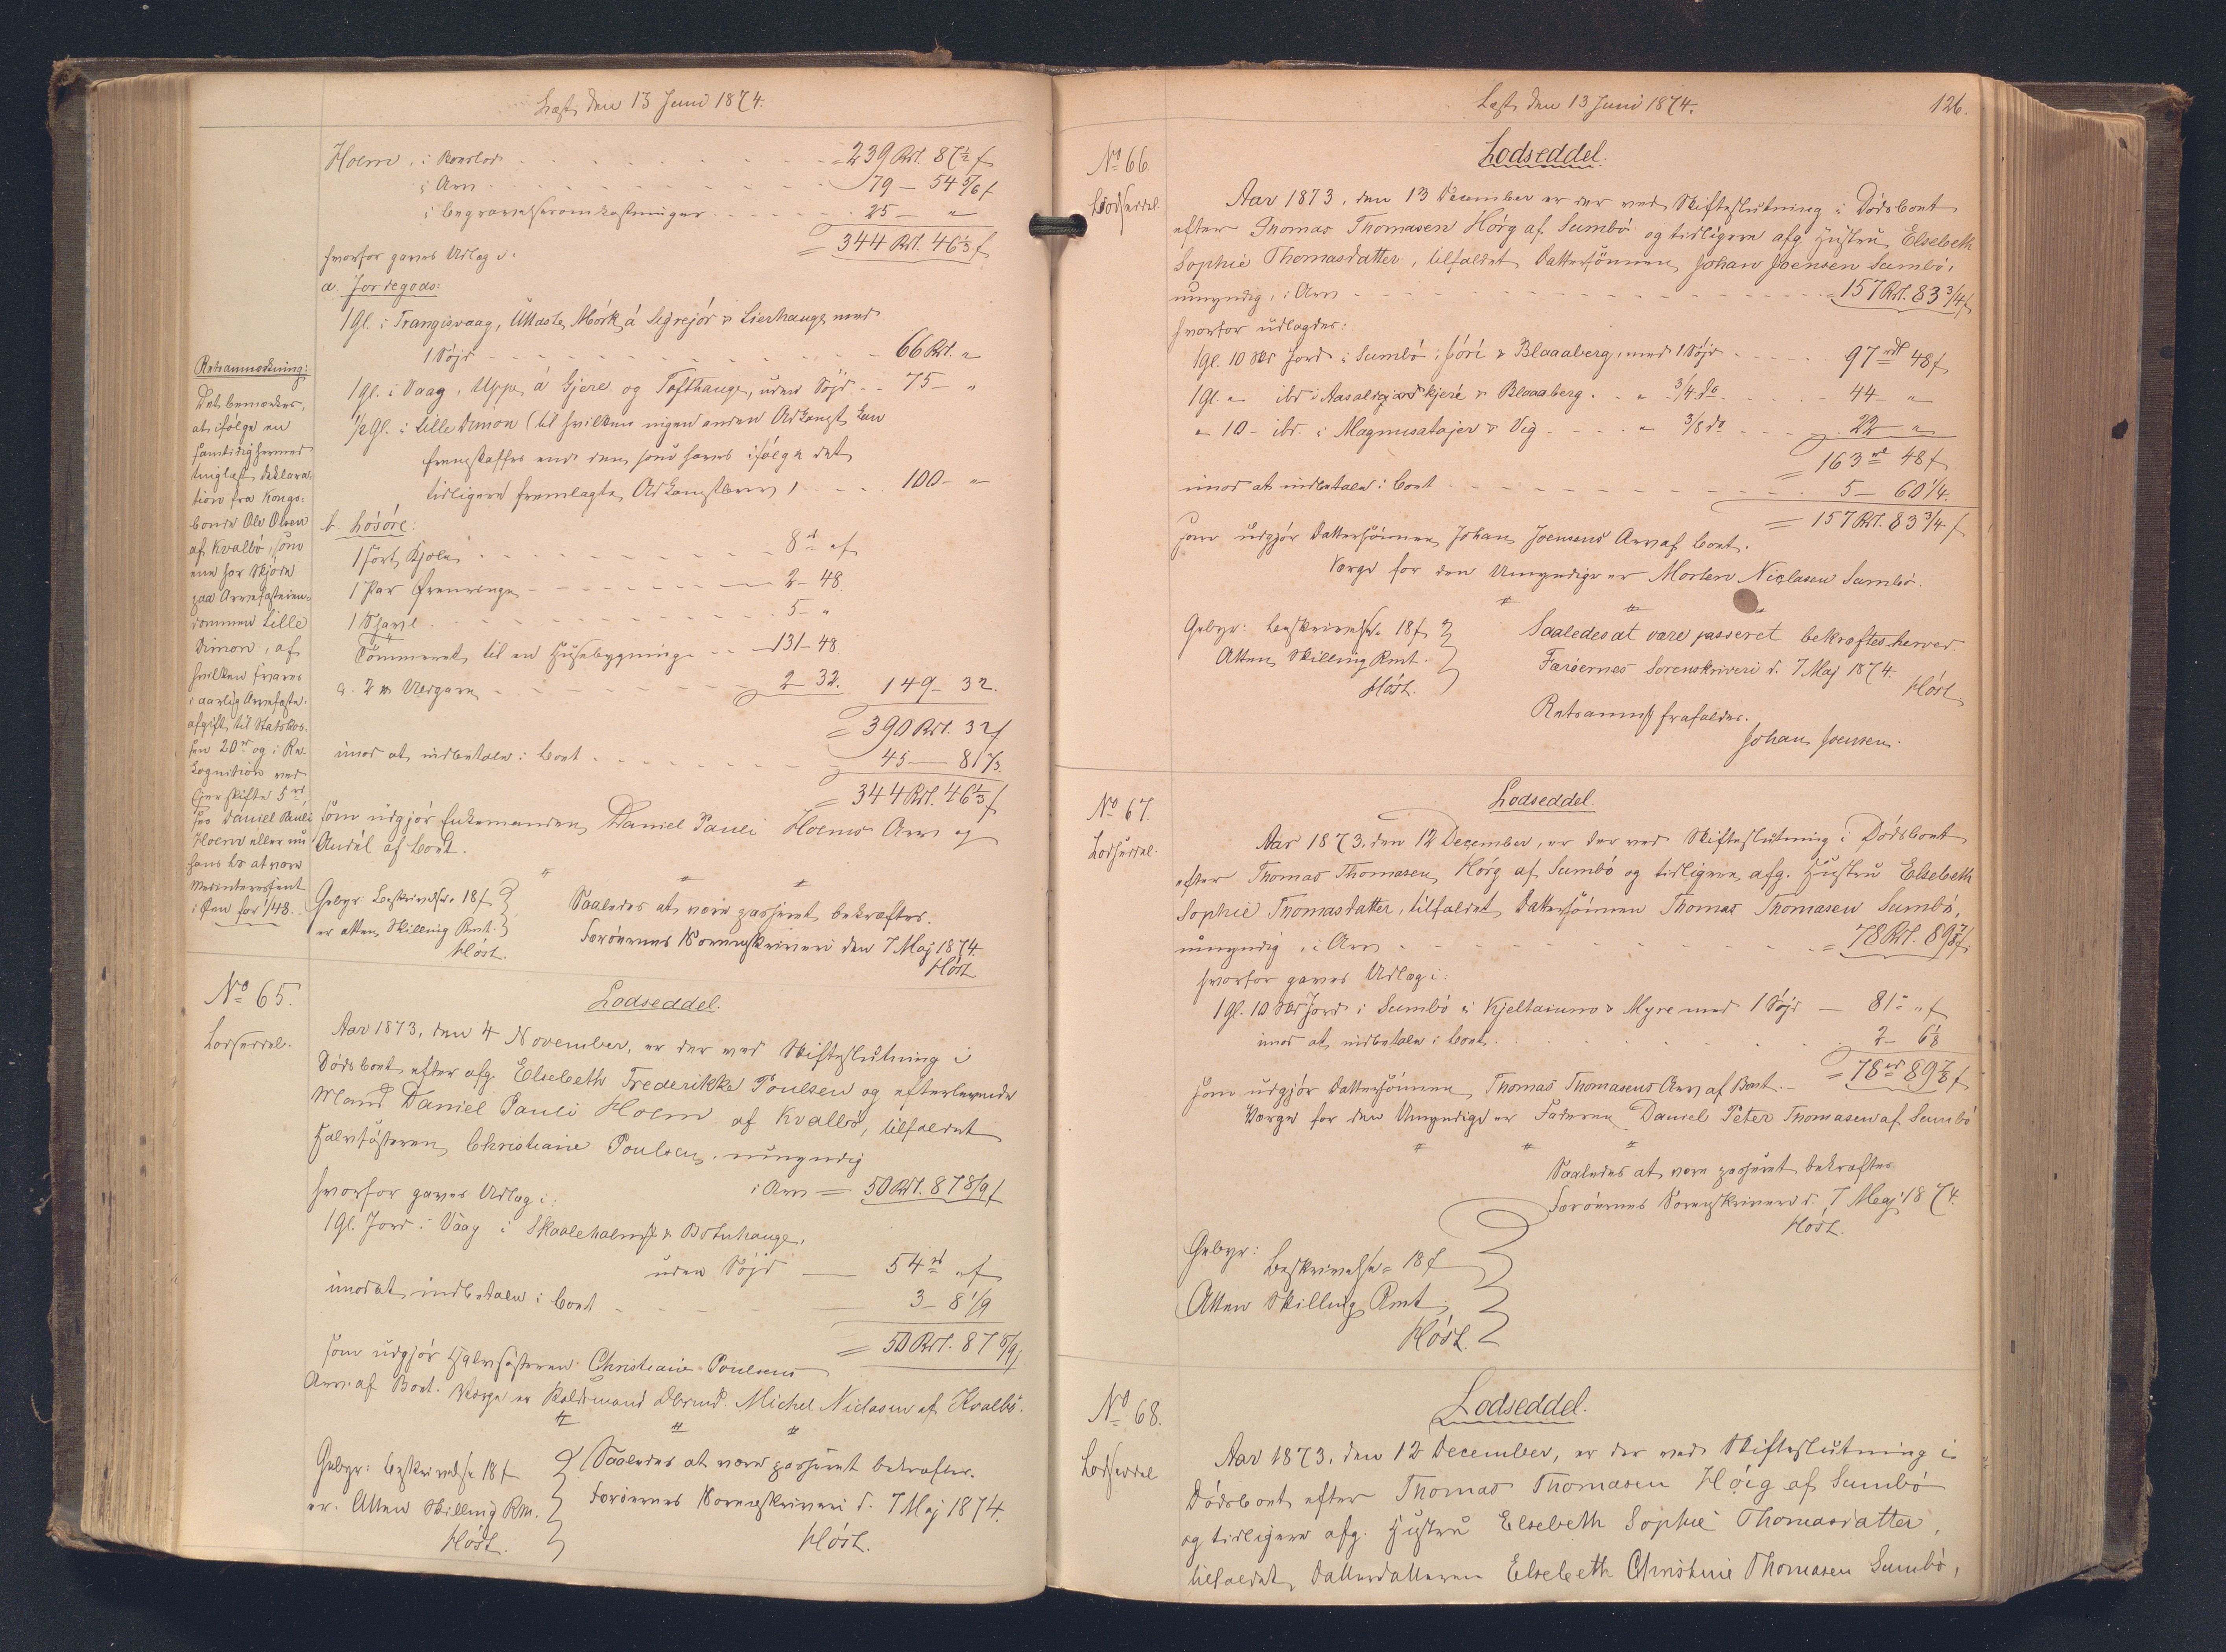 Læst den 13 Juni 1874.
Holm, i Boeslod 239 Rdl. 87½ ß
i Arv 79 — 54 5/6 ß
i Begravelsesomkostninger 25 — "
= 344 Rdl. 46⅓ ß
hvorfor gaves Udlæg i:
a. Jordegods:
1 Gl. i Trangisvaag, Uttaste Mørk, á Signejór & Lierhauge med
1 Søjd 66 Rdl. "
1 Gl. i Vaag, Uppe á Gjere og Tofthauge, uden Søjd 75 — "
½ Gl. i Lille Dimon (til hvilken ingen anden Adkomst kan
fremskaffes end den som haves ifølge det
tidligere fremlagte Adkomstbrev) 100 — "
b. Løsøre:
1 sort Kjole 8 rd " ß
1 Par Ørenringe 2 — 48
1 Shavl 5 — "
Tømmeret til en Husebygning 131 — 48
2 ℔ Uldgarn 2 32. 149 — 32.
390 Rdl. 32 ß
imod at indbetale i Boet 45 — 81⅔
= 344 Rdl. 46⅓ ß
som udgjør Enkemanden Daniel Pauli Holms Arv og
Andel af Boet.
Gebyr: Beskrivelse 18 ß
er atten Skilling Rmt.
Høst.
Saaledes at være passeret bekræftes.
Færøernes Sorenskriveri den 7 Maj 1874.
Høst
Retsanmærkning:
Det bemærkes,
at ifølge en
samtidig hermed
tinglæst Deklara-
tion fra Kongs-
bonde Ole Olsen
af Kvalbø, som
ene har Skjøde
paa Arvefæsteien-
dommen Lille
Dimon, af
hvilken svares
i aarlig Arvefæste-
afgift til Statskas-
sen 20 rd og i Re-
kognition ved
Ejerskifte 5 rd,
har Daniel Pauli
Holm eller nu
hans Bo at være
Medinteressent
i Øen for 1/48.
No 65.
Lodseddel.
Lodseddel.
Aar 1873, den 4 November, er der ved Skifteslutning i
Dødsboet efter afg. Elsebeth Frederikke Poulsen og efterlevende
Mand Daniel Pauli Holm af Kvalbø, tilfaldet
Halvsøsteren Christiane Poulsen, umyndig
i Arv = 50 Rdl. 87 8/9 ß
hvorfor gaves Udlæg i:
1 Gl. Jord i Vaag i Skaaleholmse & Botnhauge,
uden Søjd — 54 rd " ß
imod at indbetale i Boet 3 — 8 1/9
= 50 Rdl. 87 8/9 ß
som udgjør Halvsøsteren Christiane Poulsens
Arv af Boet. Værge er Michel Niclasen af Kvalbø.
Gebyr: Beskrivelse 18 ß
er Atten Skilling Rm.
Høst.
Saaledes at være passeret bekræftes.
Færøernes Sorenskriveri d. 7 Maj 1874.
Høst.
Læst den 13 Juni 1874.
126.
No 66.
Lodseddel.
Lodseddel.
Aar 1873, den 13 December er der ved Skifteslutning i Dødsboet
efter Thomas Thomasen Hörg af Sumbö og tidligere afg. Hustru Elsebeth
Sophie Thomasdatter, tilfaldet Dattersønnen Johan Joensen Sumbö,
umyndig, i Arv 157 Rdl. 83¾ ß
hvorfor udlagdes:
1 Gl. 10 Sk Jord i Sumbö i Jóri & Blaaaberg, med 1 Søjd 97 rdl 48 ß
1 Gl. " ibd. i & Blaaaberg " ¾ do 44 — "
" 10 — ibd. i Magnusatajer & Vig " 3/8 do 22 "
= 163 rd 48 ß
imod at indbetale i Boet 5 — 60¼.
= 157 Rdl. 83¾ ß
som udgjør Dattersønnen Johan Joensens Arv af Boet.
Værge for den Umyndige er Morten Niclasen Sumbö.
Gebyr: Beskrivelse 18 ß
Atten Skilling Rmt.
Høst.
Saaledes at være passeret bekræftes herved.
Færöernes Sorenskriveri d. 7 Maj 1874.
Høst.
Retsanmk frafaldes.
Johan Joensen.
No 67.
Lodseddel.
Lodseddel.
Aar 1873, den 12 December, er der ved Skifteslutning i Dødsboet
efter Thomas Thomasen Hörg af Sumbö og tidligere afg. Hustru Elsebeth
Sophie Thomasdatter, tilfaldet Dattersønnen Thomas Thomasen Sumbö,
umyndig, i Arv = 78 Rdl. 89⅞ ß
hvorfor gaves Udlæg i:
1 Gl. 10 Sk Jord i Sumbö i Kjeltaiumo & Myre med 1 Søjd — 81 " ß
imod at indbetale i Boet 2 — 6⅛
= 78 rd 89⅞ ß
som udgjør Dattersønnen Thomas Thomasens Arv af Boet.
Værge for den Umyndige er Faderen Daniel Peter Thomasen af Sumbö
Saaledes at være passeret bekræftes
Færøernes Sorenskriveri d. 7 Maj 1874.
Høst.
Gebyr:
Beskrivelse 18 ß
Atten Skilling Rmt
Høst.
No 68.
Lodseddel
Lodseddel.
Aar 1873, den 12 December, er der ved Skifteslutning i
Dødsboet efter Thomas Thomasen Hörg af Sumbö
og tidligere afg. Hustru Elsebeth Sophie Thomasdatter,
tilfaldet Datterdatteren Elsebeth Christine Thomasen Sumbö,